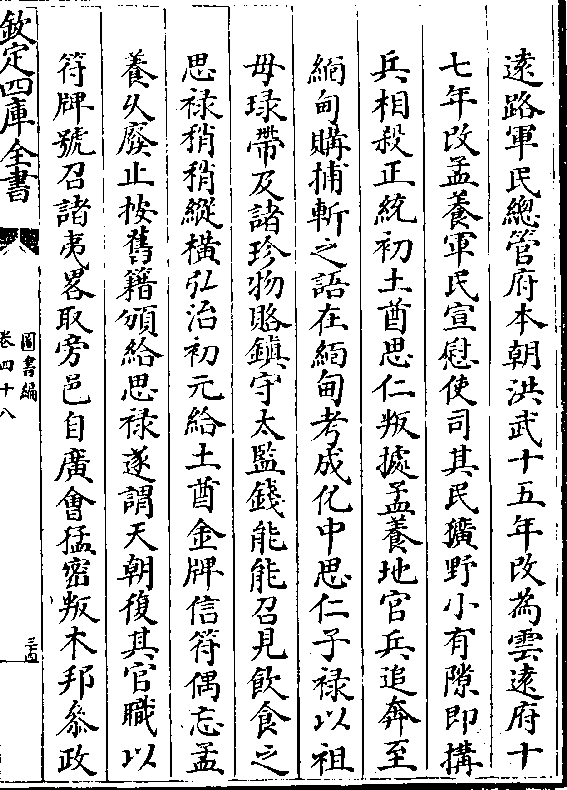 遠路軍民總管府本朝洪武十五年改為雲遠府十
七年改孟養軍民宣慰使司其民獷野小有隙即搆
兵相殺正統初土酋思仁叛據孟養地官兵追奔至
緬甸購捕斬之語在緬甸考成化中思仁子禄以祖
母琭帶及諸珍物賂鎮守太監錢能能召見飲食之
思禄稍稍縱横弘治初元給土酋金牌信符偶忘孟
養久廢止按舊籍頒給思禄遂謂天朝復其官職以
符牌號召諸夷畧取旁邑自廣會猛密叛木邦叅政
欽定四庫全書
圖書編
卷四十八
三十四